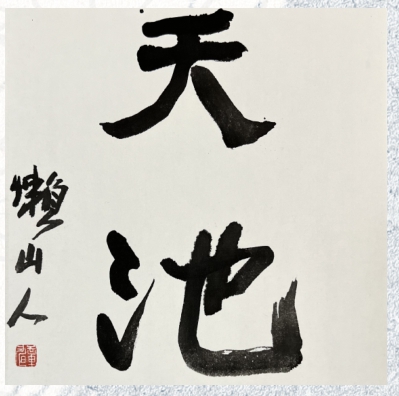 天池
懒山人